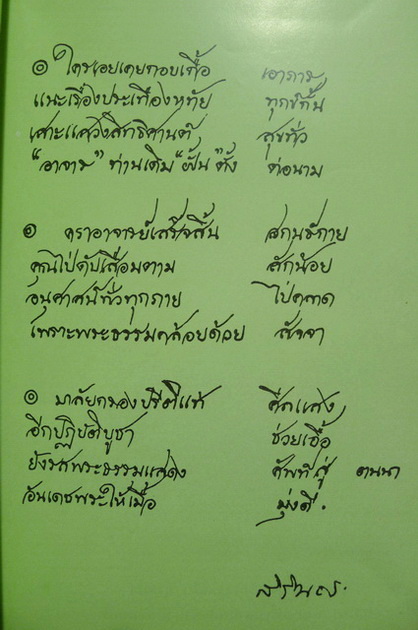 ๏ ใครเอยเคยกอบเกื้อ เอาภาร
แนะเรื่องประเทืองหทัย ทุกข์กั้น
เสาะแสวงสิทธิศานติ์ สุขทั่ว
"อาจาร" ท่านเดิม "ฝั้น" ตั้ง ต่อนาม
๏ คราอาจารย์เสร็จสิ้น สกนธ์กาย
คุณไป่ดับเสื่อมตาม สักน้อย
อนุศาสน์ทั่วทุกภาย ไป่คลาด
เพราะพระธรรมคล้อยด้อย สัจจา
๏ มาลัยกรองปรีดิ์แท้ ศึกแสง
อีกปฏิบัติบูชา ช่วยเอื้อ
ยังรสพระธรรมแสดง ศัพท์สู่ ตนนา
อันเดชพระให้เมื้อ มุ่งดี.
สิรินธร.